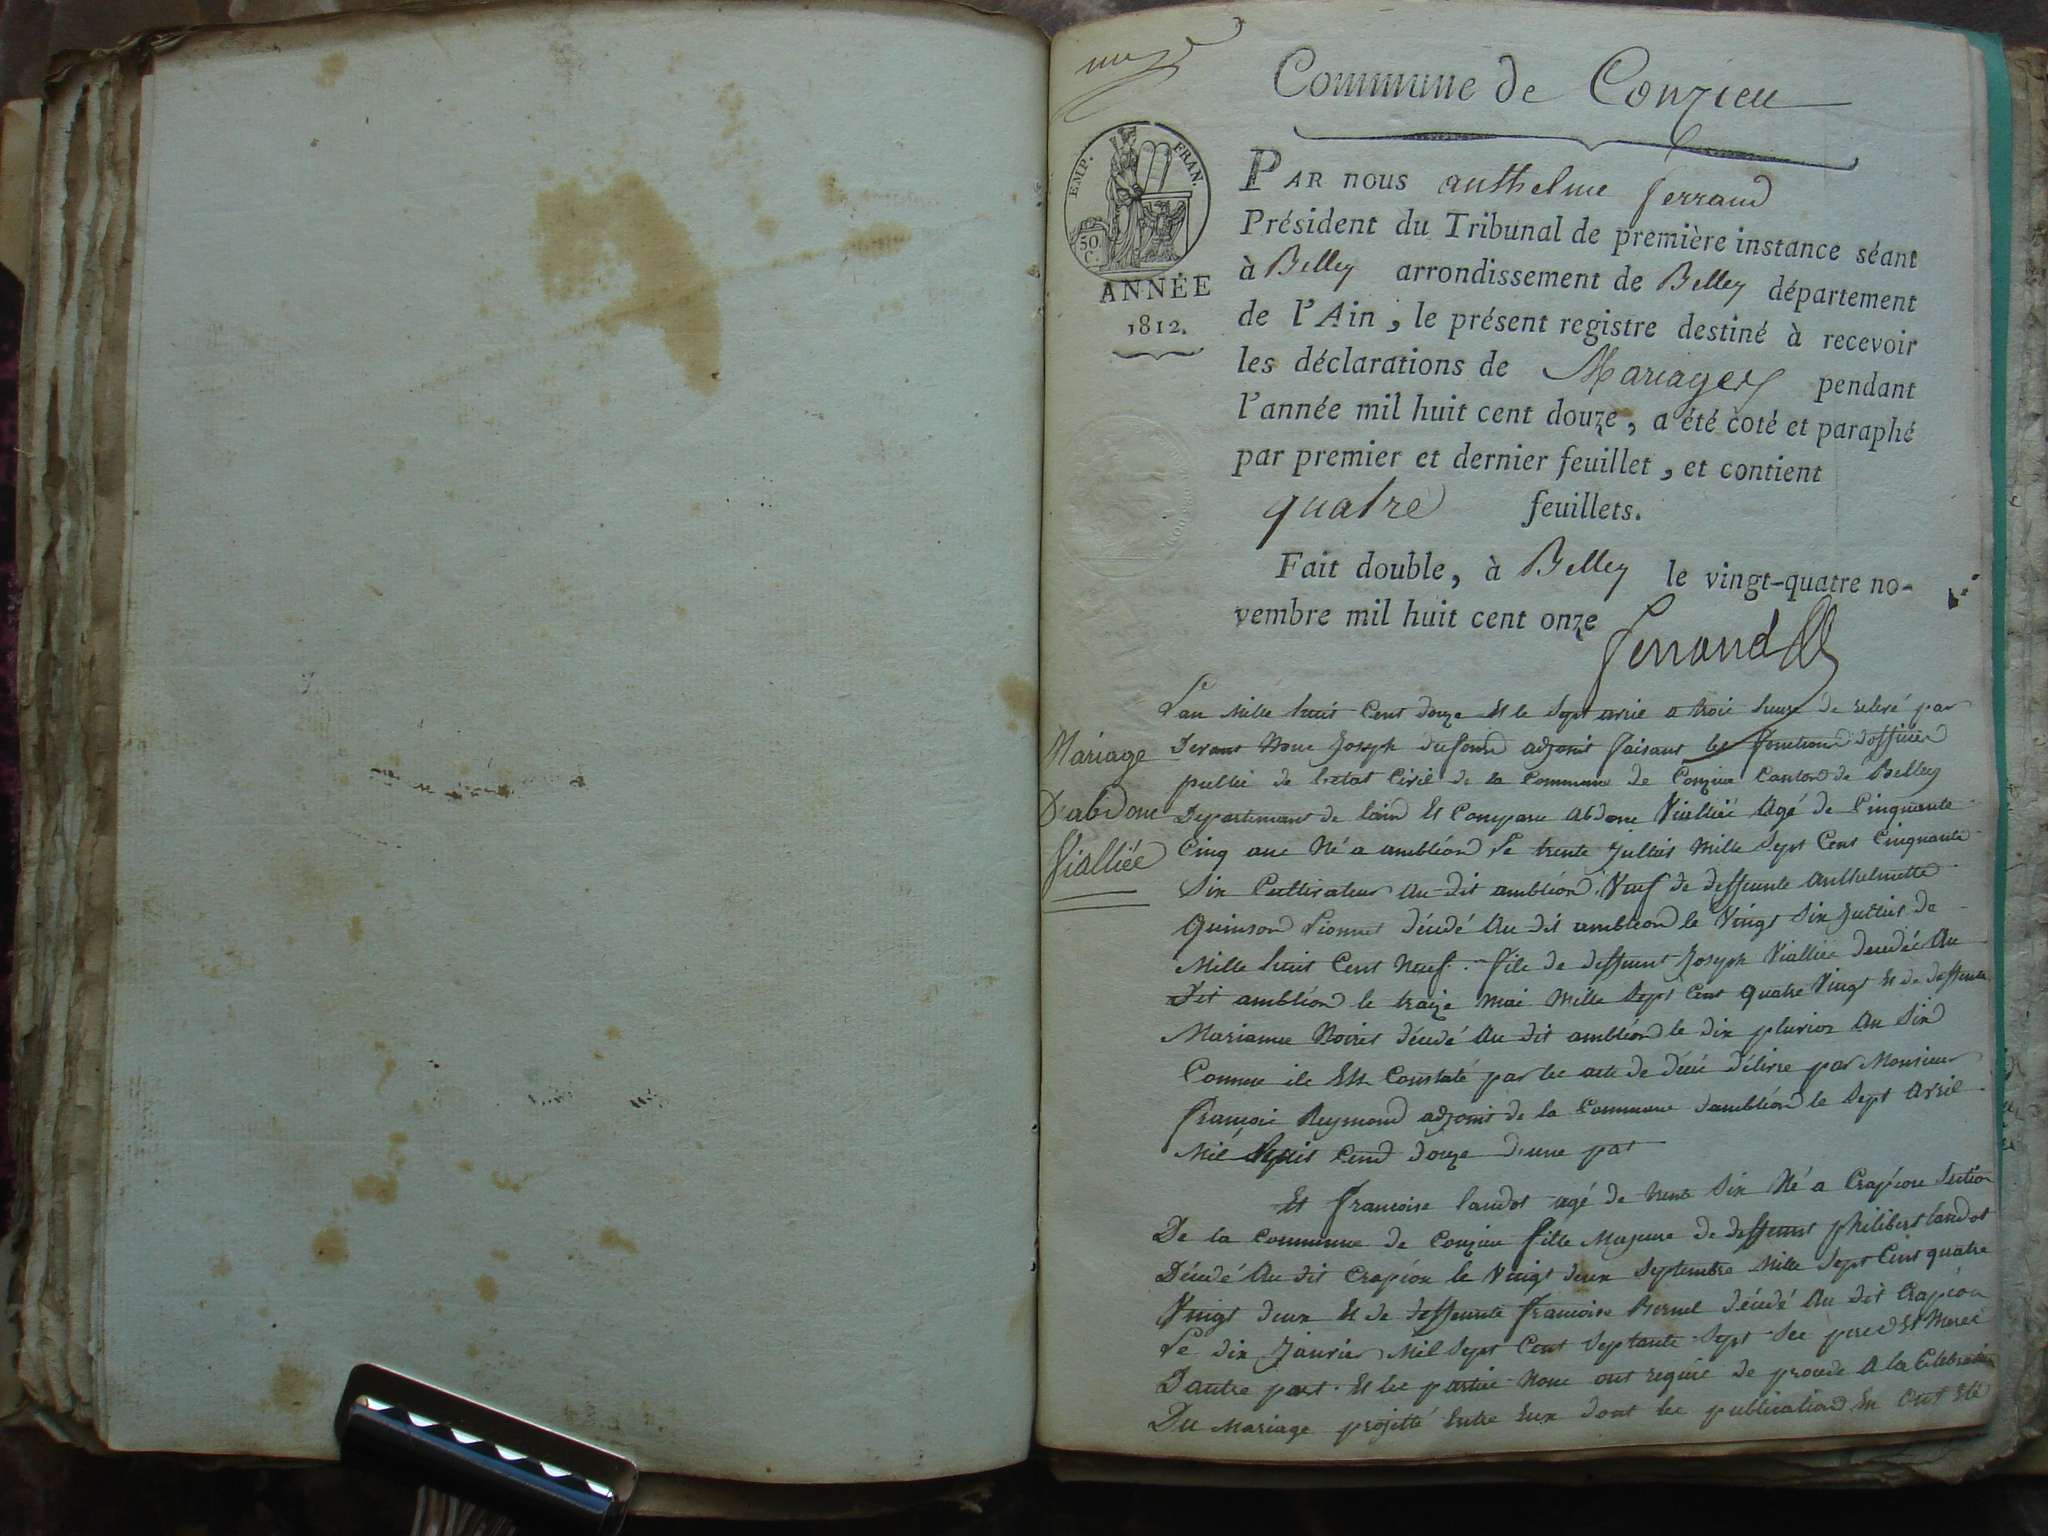 Commune de Conzieu
EMP. FRAN.
50 C.
ANNÉE
1812.
PAR nous anthelme ferrand
Président du Tribunal de première instance séant
à Belley arrondissement de Belley département
de l'Ain, le présent registre destiné à recevoir
les déclarations de Mariages pendant
l'année mil huit cent douze, a été coté et paraphé
par premier et dernier feuillet, et contient
quatre feuillets.
Fait double, à Belley le vingt-quatre no-
vembre mil huit cent onze
ferrand
Mariage
D'abdone
Vialliée
L'an Mille huit Cent douze Et le Sept avril a trois heure de relevé par
Devant Nous Joseph dufour adjoint faisant les fonctions d'officier
public de l'etat Civil de la Commune de Conzieu Canton de Belley
Departement de l'ain Et Comparu Abdone Vialliée Agé de Cinquante
Cinq ans Né a ambléon Le trente Juillet Mille Sept Cent Cinquante
Six Cultivateur Au dit ambléon Veuf de deffunte Anthelmette
Quinson décédé Au dit ambléon le Vingt Six Juillet de
Mille huit Cent Neuf. fils de deffunt Joseph Vialliée décédé Au
Dit ambléon le traize Mai Mille Sept Cent Quatre Vingt Et de deffunte
Marianne décédé Au dit ambléon le dix pluvios An Six
Comme ils Est Constaté par les acte de décé délivré par Monsieur
françois Reymond adjoint de la Commune d'ambléon le Sept Avril
Mil huit Cend douze d'une par
Et francoise landot agé de trente Six Né a Crapéou Section
De la Commune de Conzieu fille Majeure de deffunt philibert landot
Décédé Au dit Crapéou le Vingt deux Septembre Mille Sept Cent quatre
Vingt deux Et de deffunte francoise décédé Au dit Crapéou
Le dix Janvier Mil Sept Cent Septante Sept Ses pere Et Mere
D'autre part. Et les partie Nous ont requis de procede A la Celebration
Du Mariage projetté Entre Eux dont les publication En Ont Eté